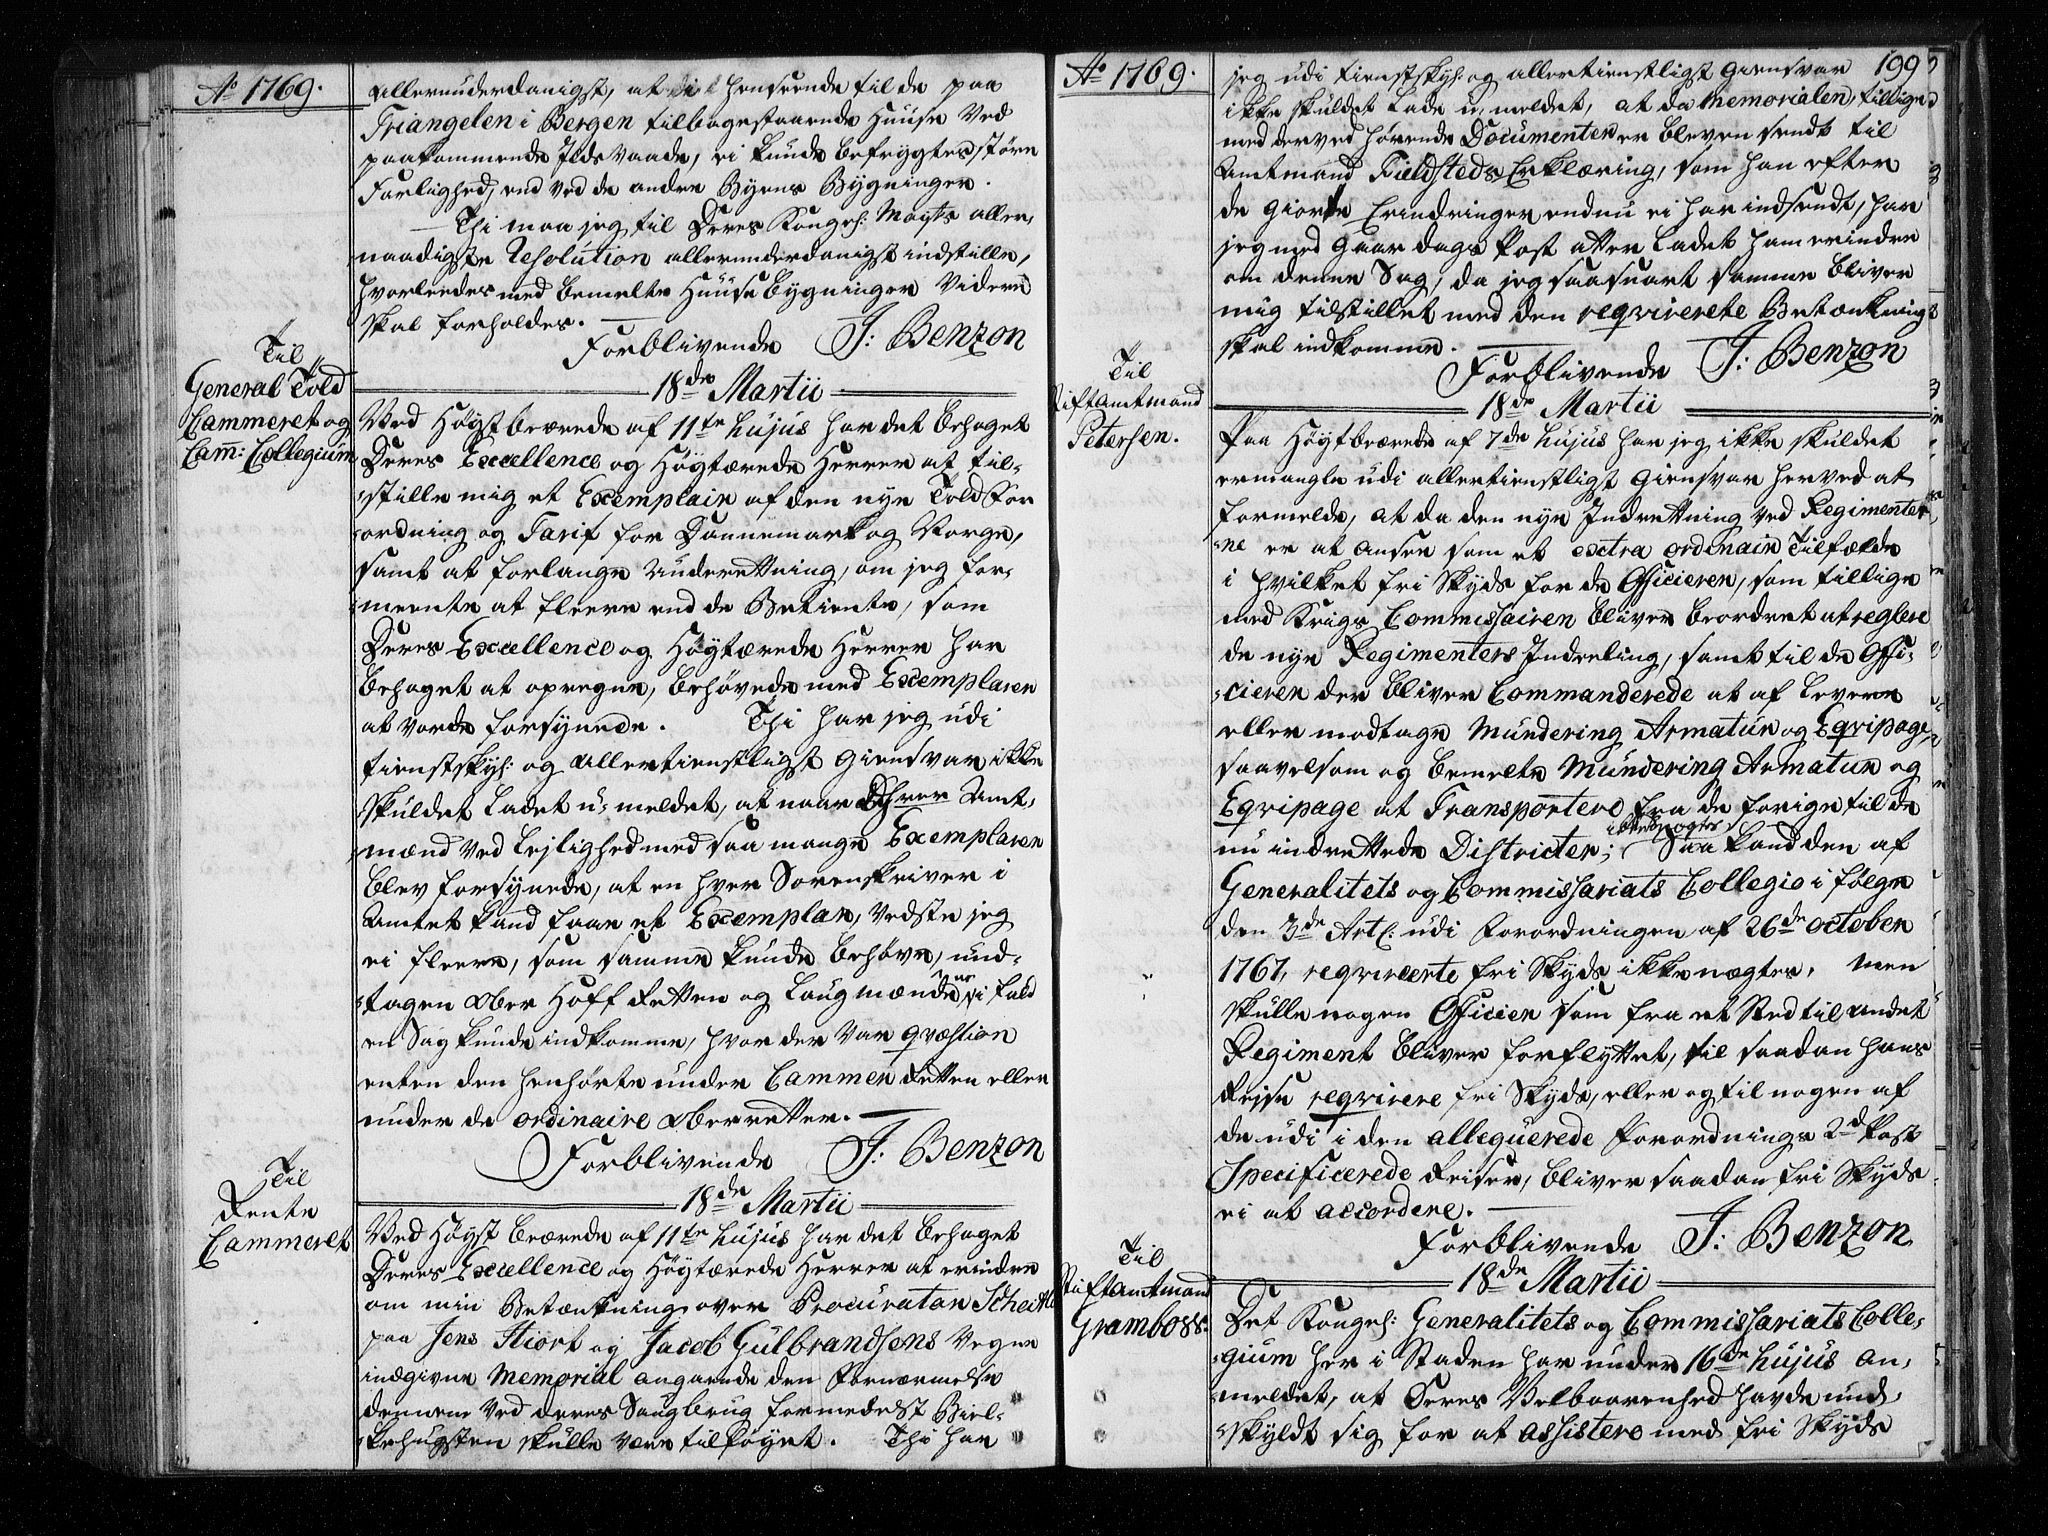 Aō 1769.
allerunderdanigst, at i henseende til de paa
Triangelen i Bergen tilbagestaaende Huuse ved
paakommende Ilds Vaade, ei kunde befrygtes større
Farlighed, end ved de andre Byens Bygninger.
Thi maa jeg til Deres Kongel: Mayts aller-
naadigste Resolution allerunderdanigst indstille,
hvorleedes med bemelte Huuse Bygninger videre
skal forholdes.
Forblivende J: Benzon
18de Martii
Til
General Told
Cammeret og
Cam̄: Collegium
Ved Høystbeærede af 11te hujus har det behaget
Deres Excellence og Høytærede Herrer at til-
stille mig et Exemplair af den nye Told For-
ordning og Tarif for Dannemark og Norge,
samt at forlange Underettning, om jeg for-
meente at fleere end de Betiente, som
Deres Excellence og Høytærede Herrer har
behaget at opregne, behøvede med Exemplarer
at vorde forsynede. Thi har jeg udi
tienstskyl: og allertienstligst Giensvar ikke
skuldet ladet u-meldet, at naar Enhver Amt-
mænd ved Lejlighed med saa mange Exemplarer
blev forsynede, at en hver Sorenskriver i
Amtet kand faae et Exemplar, vedste jeg
ei fleere, som samme kunde behøve, und-
tagen Ober Hoff Retten og Laugmændene, i fald
en Sag kunde indkomme, hvor der var qvæstion
enten den henhørte under Cammer Retten eller
under de ordinaire Oberretter.
Forblivende J: Benzon
18de Martii
Til
Rente
Cammeret
Ved Høyst beærede af 11te hujus har det behaget
Deres Excellence og Høytærede Herrer at erindre
om min Betænkning over Procurator Scheitlis
paa Jens Hiort og Jacob Gulbrandsens Vegne
indgivne Memorial angaaende den Fornærmelse
dennem ved deres Saugbrug formedelst Biel-
kehugsten skulle være tilføyet. Thi har
Aō 1769.
199
jeg udi tienstskyl: og allertienstligst Giensvar
ikke skuldet lade u-meldet, at da Memorialen, tillige
med derved hørende Documenter er bleven sendt til
Amtmand Fieldsteds Erklæring, som han efter
de giorte Erindringer endnu ei har indsendt, har
jeg med Gaar dags Post atter ladet ham erindre
om denne Sag, da jeg saasnart samme bliver
mig tilstillet med den reqvirerete Betænkning
skal indkomme.
Forblivende J: Benzon
18de Martii
Til
Stiftamtmand
Petersen.
Paa Høystbeærede af 7de hujus har jeg ikke skuldet
ermangle udi allertienstligst Giensvar herved at
formelde, at da den nye Indrettning ved Regimenter-
ne er at ansee som et extra ordinair Tilfælde
i hvilket fri Skyds for de Officierer, som tillige
med Krigs Commissairen bliver beordret at reglere
de nye Regimenters Indreling, samt til de Offi-
cierer der bliver Commanderede at af levere
eller modtage Mundering Armatur og Eqvipage,
saavelsom og bemelte Mundering Armatur og
Eqvipage at Transportere fra de forige til de
nu indrettede Districter; ikke nægtes Saa kand den af
Generalitets og Commissariats Collegio i følge
den 3de Artl: udi Forordningen af 26de October
1767, reqvireerte fri Skyds ikke nægtes. Men
skulle nogen Officier som fra et Sted til andet
Regiment bliver forflyttet, til saadan hans
Rejse reqvirere fri Skyds, eller og til nogen af
de udi i den alleguerede Forordnings 2d Post
Specificerede Reiser, bliver saadan fri Skyds
ei at accordere.
Forblivende J: Benzon
18de Martii
Til
Stiftamtmand
Grambow.
Det Kongel: Generalitets og Commissariats Colle-
gium her i Staden har under 16de hujus an-
meldet, at Deres Velbaarenhed havde und-
skyldt sig for at assistere med fri Skyds